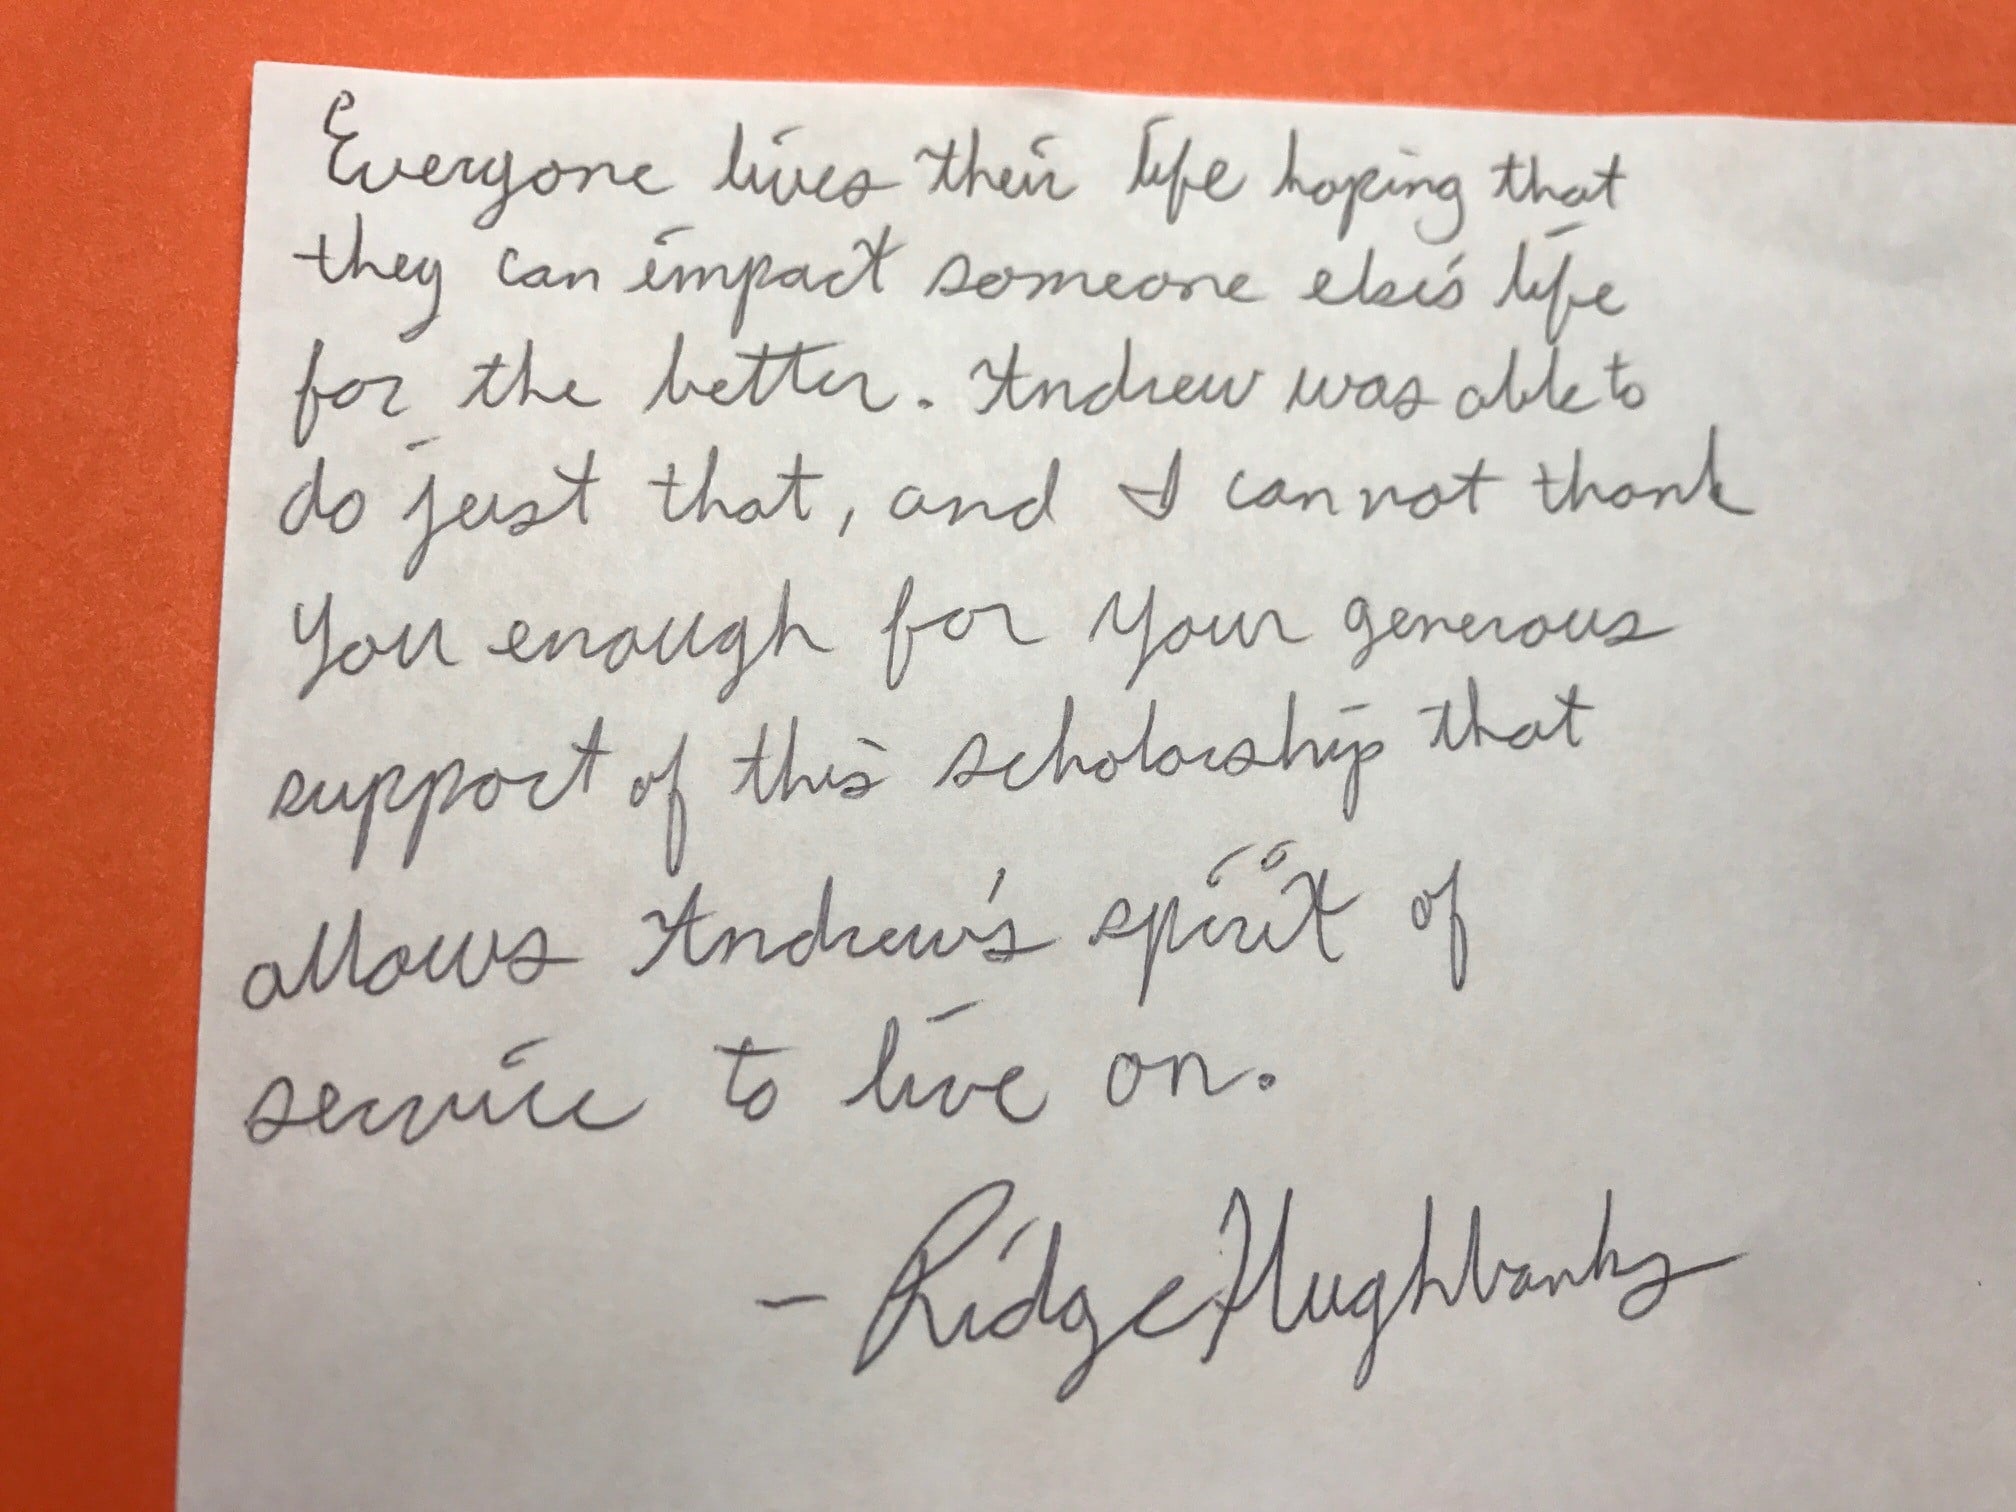 Everyone lives their life hoping that
they can impact someone else's life
for the better. Andrew was able to
do just that, and I cannot thank
you enough for your generous
support of this scholarship that
allows Andrew's spirit of
service to live on.
- Ridge Hughbanks